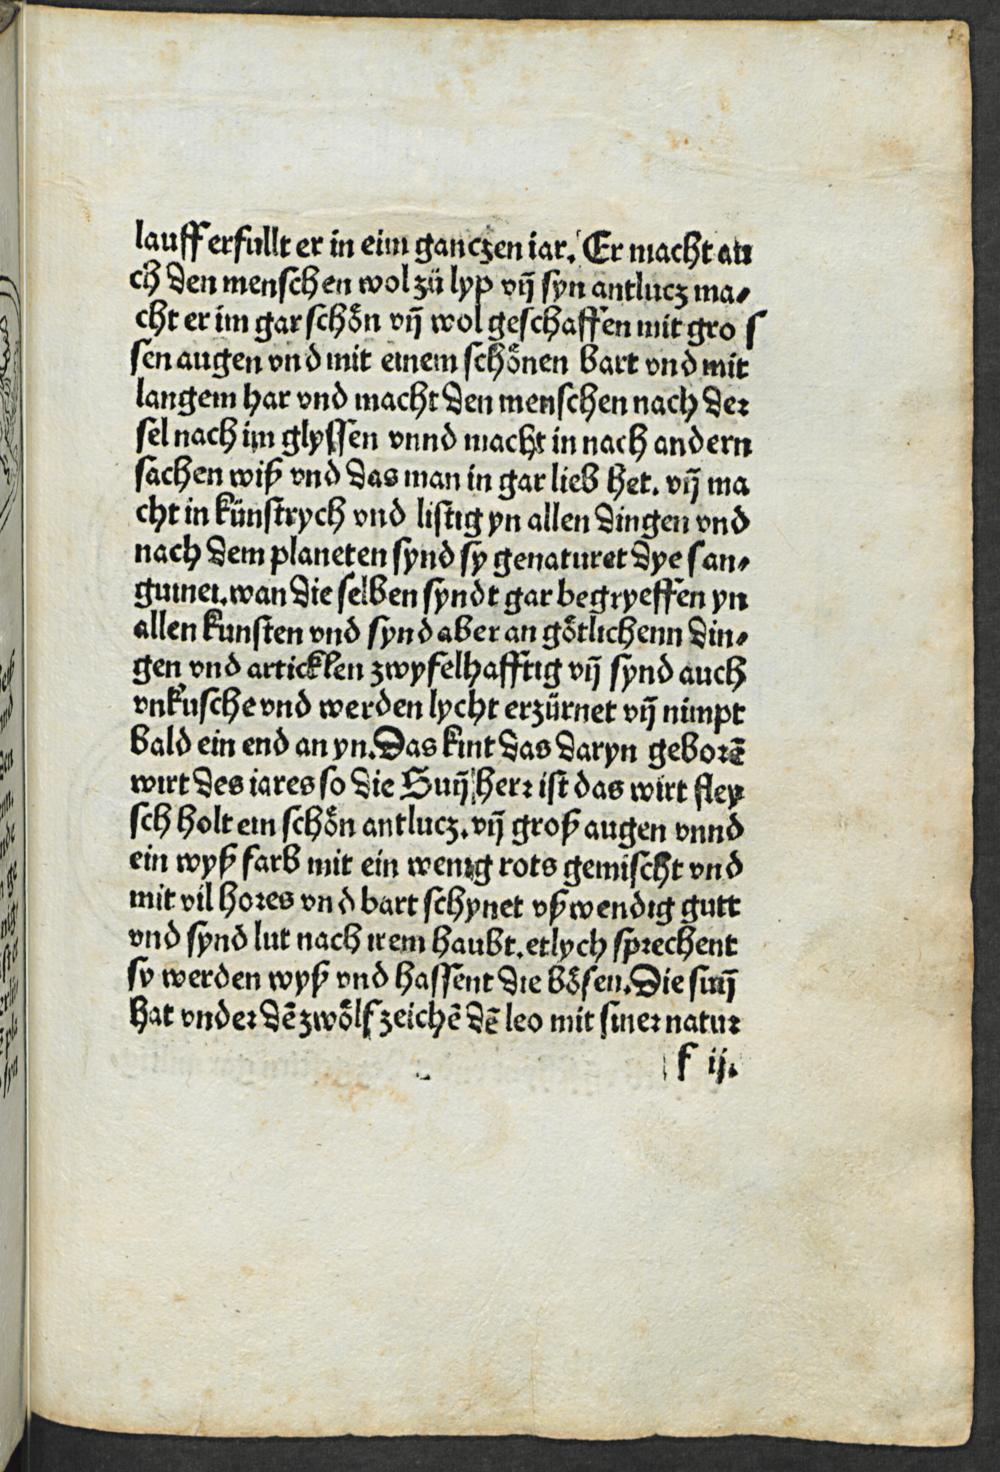 lauff erfullt er in eim ganczen iar. Er macht au
ch den menschen wol zü lyp vn̄ syn antlucz ma⸗
cht er im gar schoͤn vn̄ wol geschaffen mit gro s
sen augen vnd mit einem schoͤnen bart vnd mit
langem har vnd macht den menschen nach der
sel nach im glyssen vnnd macht in nach andern
sachen wiß vnd das man in gar lieb het. vn̄ ma
cht in künstrych vnd listig yn allen dingen vnd
nach dem planeten synd sy genaturet dye san⸗
guinei. wan die selben syndt gar begryeffen yn
allen kunsten vnd synd aber an goͤtlichenn din⸗
gen vnd articklen zwyfelhafftig vn̄ synd auch
vnkusche vnd werden lycht erzürnet vn̄ nimpt
bald ein end an yn. Das kint das daryn geborē
wirt des iares so die Sun̄ herr ist das wirt fley
sch holt ein schoͤn antlucz. vn̄ groß augen vnnd
ein wyß farb mit ein wenig rots gemischt vnd
mit vil hores vnd bart schynet vßwendig gutt
vnd synd lut nach irem haubt. etlych sprechent
sy werden wyß vnd hassent die boͤsen. Die sun̄
hat vnder dē zwoͤlf zeichē dē leo mit siner natur
f ij.